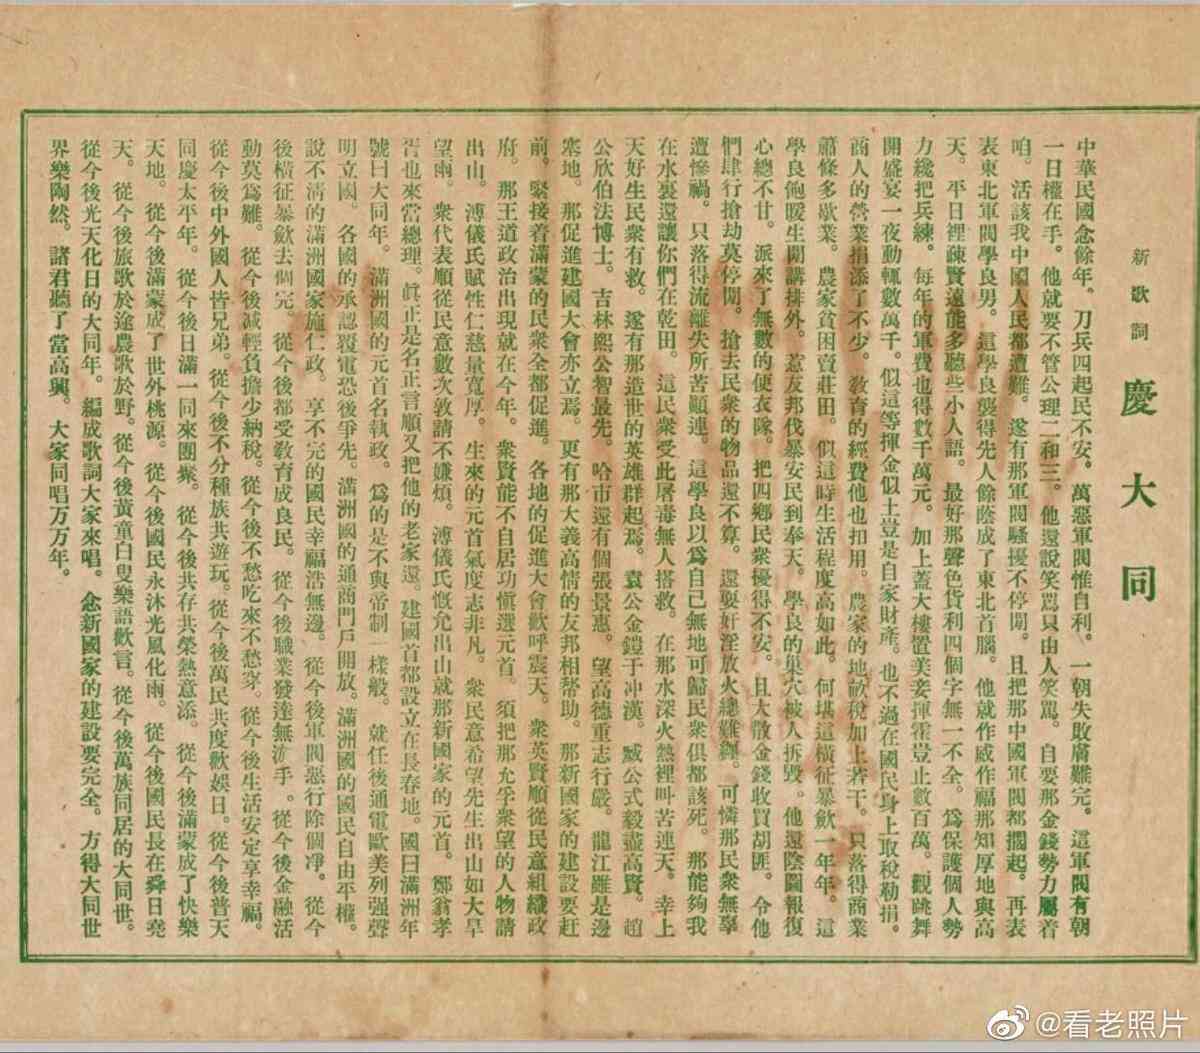 新歌詞
慶大同
中華民國念餘年。刀兵四起民不安。萬惡軍閥惟自利。一朝失敗膚難完。這軍閥有朝
一日權在手。他就要不管公理二和三。他還說笑罵只由人笑罵。自要那金錢勢力屬着
咱。活該我中國人民都遭難。遂有那軍閥騷擾不停閒。且把那中國軍閥都擱起。再表
表東北軍閥學良男。這學良襲得先人餘蔭成了東北首腦。他就作威作福那知厚地與高
天。平日裡疎賢遠能多聽些小人語。最好那聲色貨利四個字無一不全。爲保護個人勢
力纔把兵練。每年的軍費也得數千萬元。加上蓋大樓置美妾揮霍豈止數百萬。觀跳舞
開盛宴一夜動輒數萬千。似這等揮金似土豈是自家財產。也不過在國民身上取稅勒捐。
商人的營業捐添了不少。敎育的經費他也扣用。農家的地畝稅加上若干。只落得商業
蕭條多歇業。農家貧困賣莊田。似這時生活程度高如此。何堪這橫征暴歛一年年。這
學良飽暖生閒講排外。惹友邦伐暴安民到奉天。學良的巢穴被人拆毀。他還陰圖報復
心總不甘。派來了無數的便衣隊。把四鄉民衆擾得不安。且大散金錢收買胡匪。令他
們肆行搶劫莫停閒。搶去民衆的物品還不算。還要奸淫放火總難綳。可憐那民衆無辜
遭慘禍。只落得流離失所苦顚連。這學良以爲自己無地可歸民衆俱都該死。那能夠我
在水裏還讓你們在乾田。這民衆受此屠毒無人搭救。在那水深火熱裡叫苦連天。幸上
天好生民衆有救。遂有那造世的英雄群起焉。袁公金鎧于冲漢。臧公式毅盡高賢。趙
公欣伯法博士。吉林熙公智最先。哈市還有個張景惠。望高德重志行嚴。龍江雖是邊
寒地。那促進建國大會亦立焉。更有那大義高情的友邦相幇助。那新國家的建設要赶
前。緊接着滿蒙的民衆全都促進。各地的促進大會歡呼震天。衆英賢順從民意組織政
府。那王道政治出現就在今年。衆賢能不自居功愼選元首。須把那允孚衆望的人物請
出山。溥儀氏賦性仁慈量寬厚。生來的元首氣度志非凡。衆民意希望先生出山如大旱
望雨。衆代表順從民意數次敦請不嫌煩。溥儀氏慨允出山就那新國家的元首。鄭翁孝
胥也來當總理。眞正是名正言順又把他的老家還。建國首都設立在長春地。國曰滿洲年
號曰大同年。滿洲國的元首名執政。爲的是不與帝制一樣般。就任後通電歐美列强聲
明立國。各國的承認覆電恐後爭先。滿洲國的通商門戶開放。滿洲國的國民自由平權。
說不淸的滿洲國家施仁政。享不完的國民幸福浩無邊。從今後軍閥惡行除個凈。從今
後橫征暴歛去個完。從今後都受敎育成良民。從今後職業發達無游手。從今後金融活
動莫爲難。從今後減輕負擔少納稅。從今後不愁吃來不愁穿。從今後生活安定享幸福。
從今後中外國人皆兄弟。從今後不分種族共遊玩。從今後萬民共度歡娛日。從今後普天
同慶太平年。從今後日滿一同來團聚。從今後共存共榮熱意添。從今後滿蒙成了快樂
天地。從今後滿蒙成了世外桃源。從今後國民永沐光風化雨。從今後國民長在舜日堯
天。從今後旅歌於途農歌於野。從今後黃童白叟樂語歡言。從今後萬族同居的大同世。
從今後光天化日的大同年。編成歌詞大家來唱。念新國家的建設要完全。方得大同世
界樂陶然。諸君聽了當高興。大家同唱万万年。
@看老照片